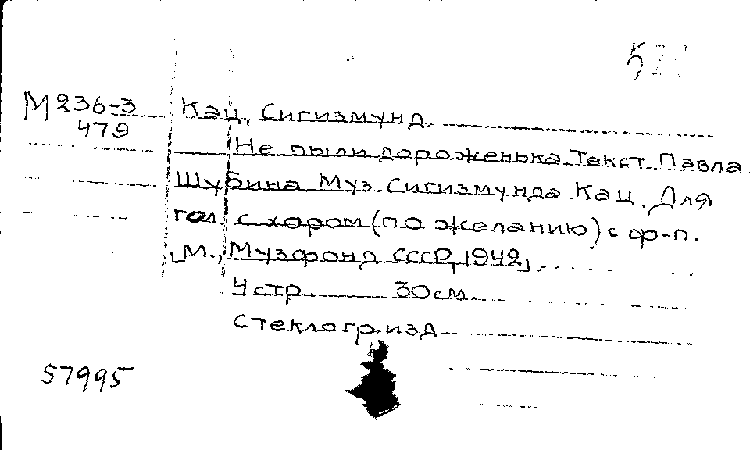 М236-3 Кац, Сигизмунд.
479
Не пыли дороженька. Текст Павла
Шубина Муз. Сигизмунда Кац. Для
гол. с хором (по желанию) с ф-п.
М., Музфонд СССР, 1942,
4 стр. 30 см.
Стеклогр. изд.
57995